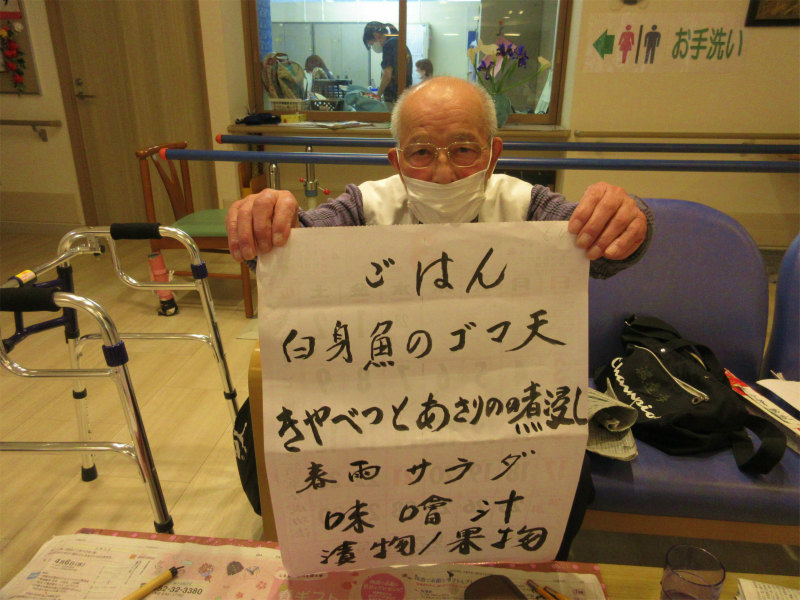 お手洗い
ごはん
白身魚のゴマ天
きやべつとあさりの煮浸し
春雨サラダ
味噌汁
漬物/果物
Champio
4月6日
32-3380
ギフト